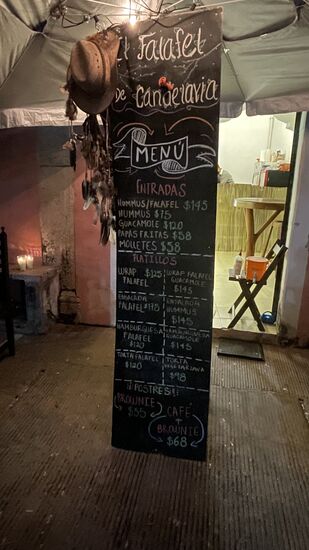 El Falafel
de Candelaria
MENÚ
ENTRADAS
HUMMUS/FALAFEL $145
HUMMUS $75
GUACAMOLE $120
PAPAS FRITAS $58
MOLLETES $58
PLATILLOS
WRAP $125
FALAFEL
WRAP FALAFEL
GUACAMOLE
$145
ENSALADA
FALAFEL $175
ENSALADA
HUMMUS
$145
HAMBURGUESA
FALAFEL
$120
HAMBURGUESA
GUACAMOLE
$145
TORTA FALAFEL
$120
TORTA
VEGETARIANA
$98
POSTRES
BROWNIE
$55
CAFÉ
+
BROWNIE
$68